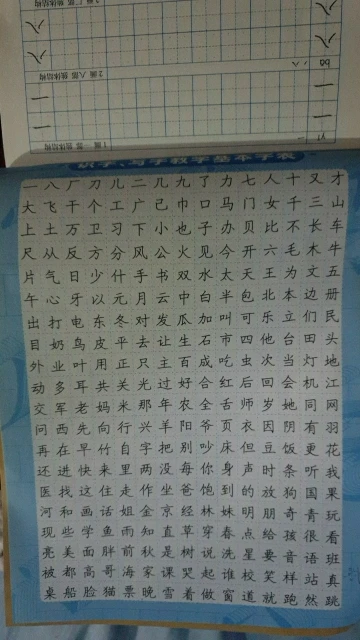 八 八
bā 八
2画 八部 独体结构
一 一
yī 一
1画 一部 独体结构
识字、写字教学基本字表
一 八 厂 刀 儿 二 几 九 了 力 七 人 十 又 才
大 飞 干 个 工 广 己 巾 口 马 门 女 千 三 山
上 土 万 卫 习 下 小 也 子 办 贝 比 不 长 车
尺 从 反 方 分 风 公 火 见 今 开 六 毛 木 牛
片 气 日 少 什 手 书 双 水 太 天 王 为 文 五
午 心 牙 以 元 月 云 中 白 半 包 北 本 边 册
出 打 电 东 冬 对 发 瓜 加 叫 可 乐 立 们 民
目 奶 鸟 皮 平 去 让 生 石 市 四 他 台 田 头
外 业 叶 用 正 只 主 百 成 吃 虫 次 当 灯 地
动 多 耳 共 关 光 过 好 合 红 后 回 会 机 江
交 军 老 妈 米 那 年 农 全 舌 师 岁 她 同 网
问 西 先 向 行 兴 羊 阳 爷 页 衣 因 阴 有 羽
再 在 早 竹 自 字 把 别 吵 床 但 豆 饭 更 花
还 进 快 来 里 两 没 每 你 身 声 时 条 听 我
医 找 这 住 走 作 坐 爸 饱 到 的 放 狗 国 果
河 和 画 话 姐 金 京 经 林 妹 明 朋 奇 青 玩
现 些 学 鱼 雨 知 直 草 穿 春 点 给 孩 很 看
亮 美 面 胖 前 秋 是 树 说 洗 星 要 音 语 班
被 都 高 哥 海 家 课 哭 起 谁 校 笑 样 站 真
桌 船 脸 猫 票 晚 雪 着 做 窗 道 就 跑 然 跳